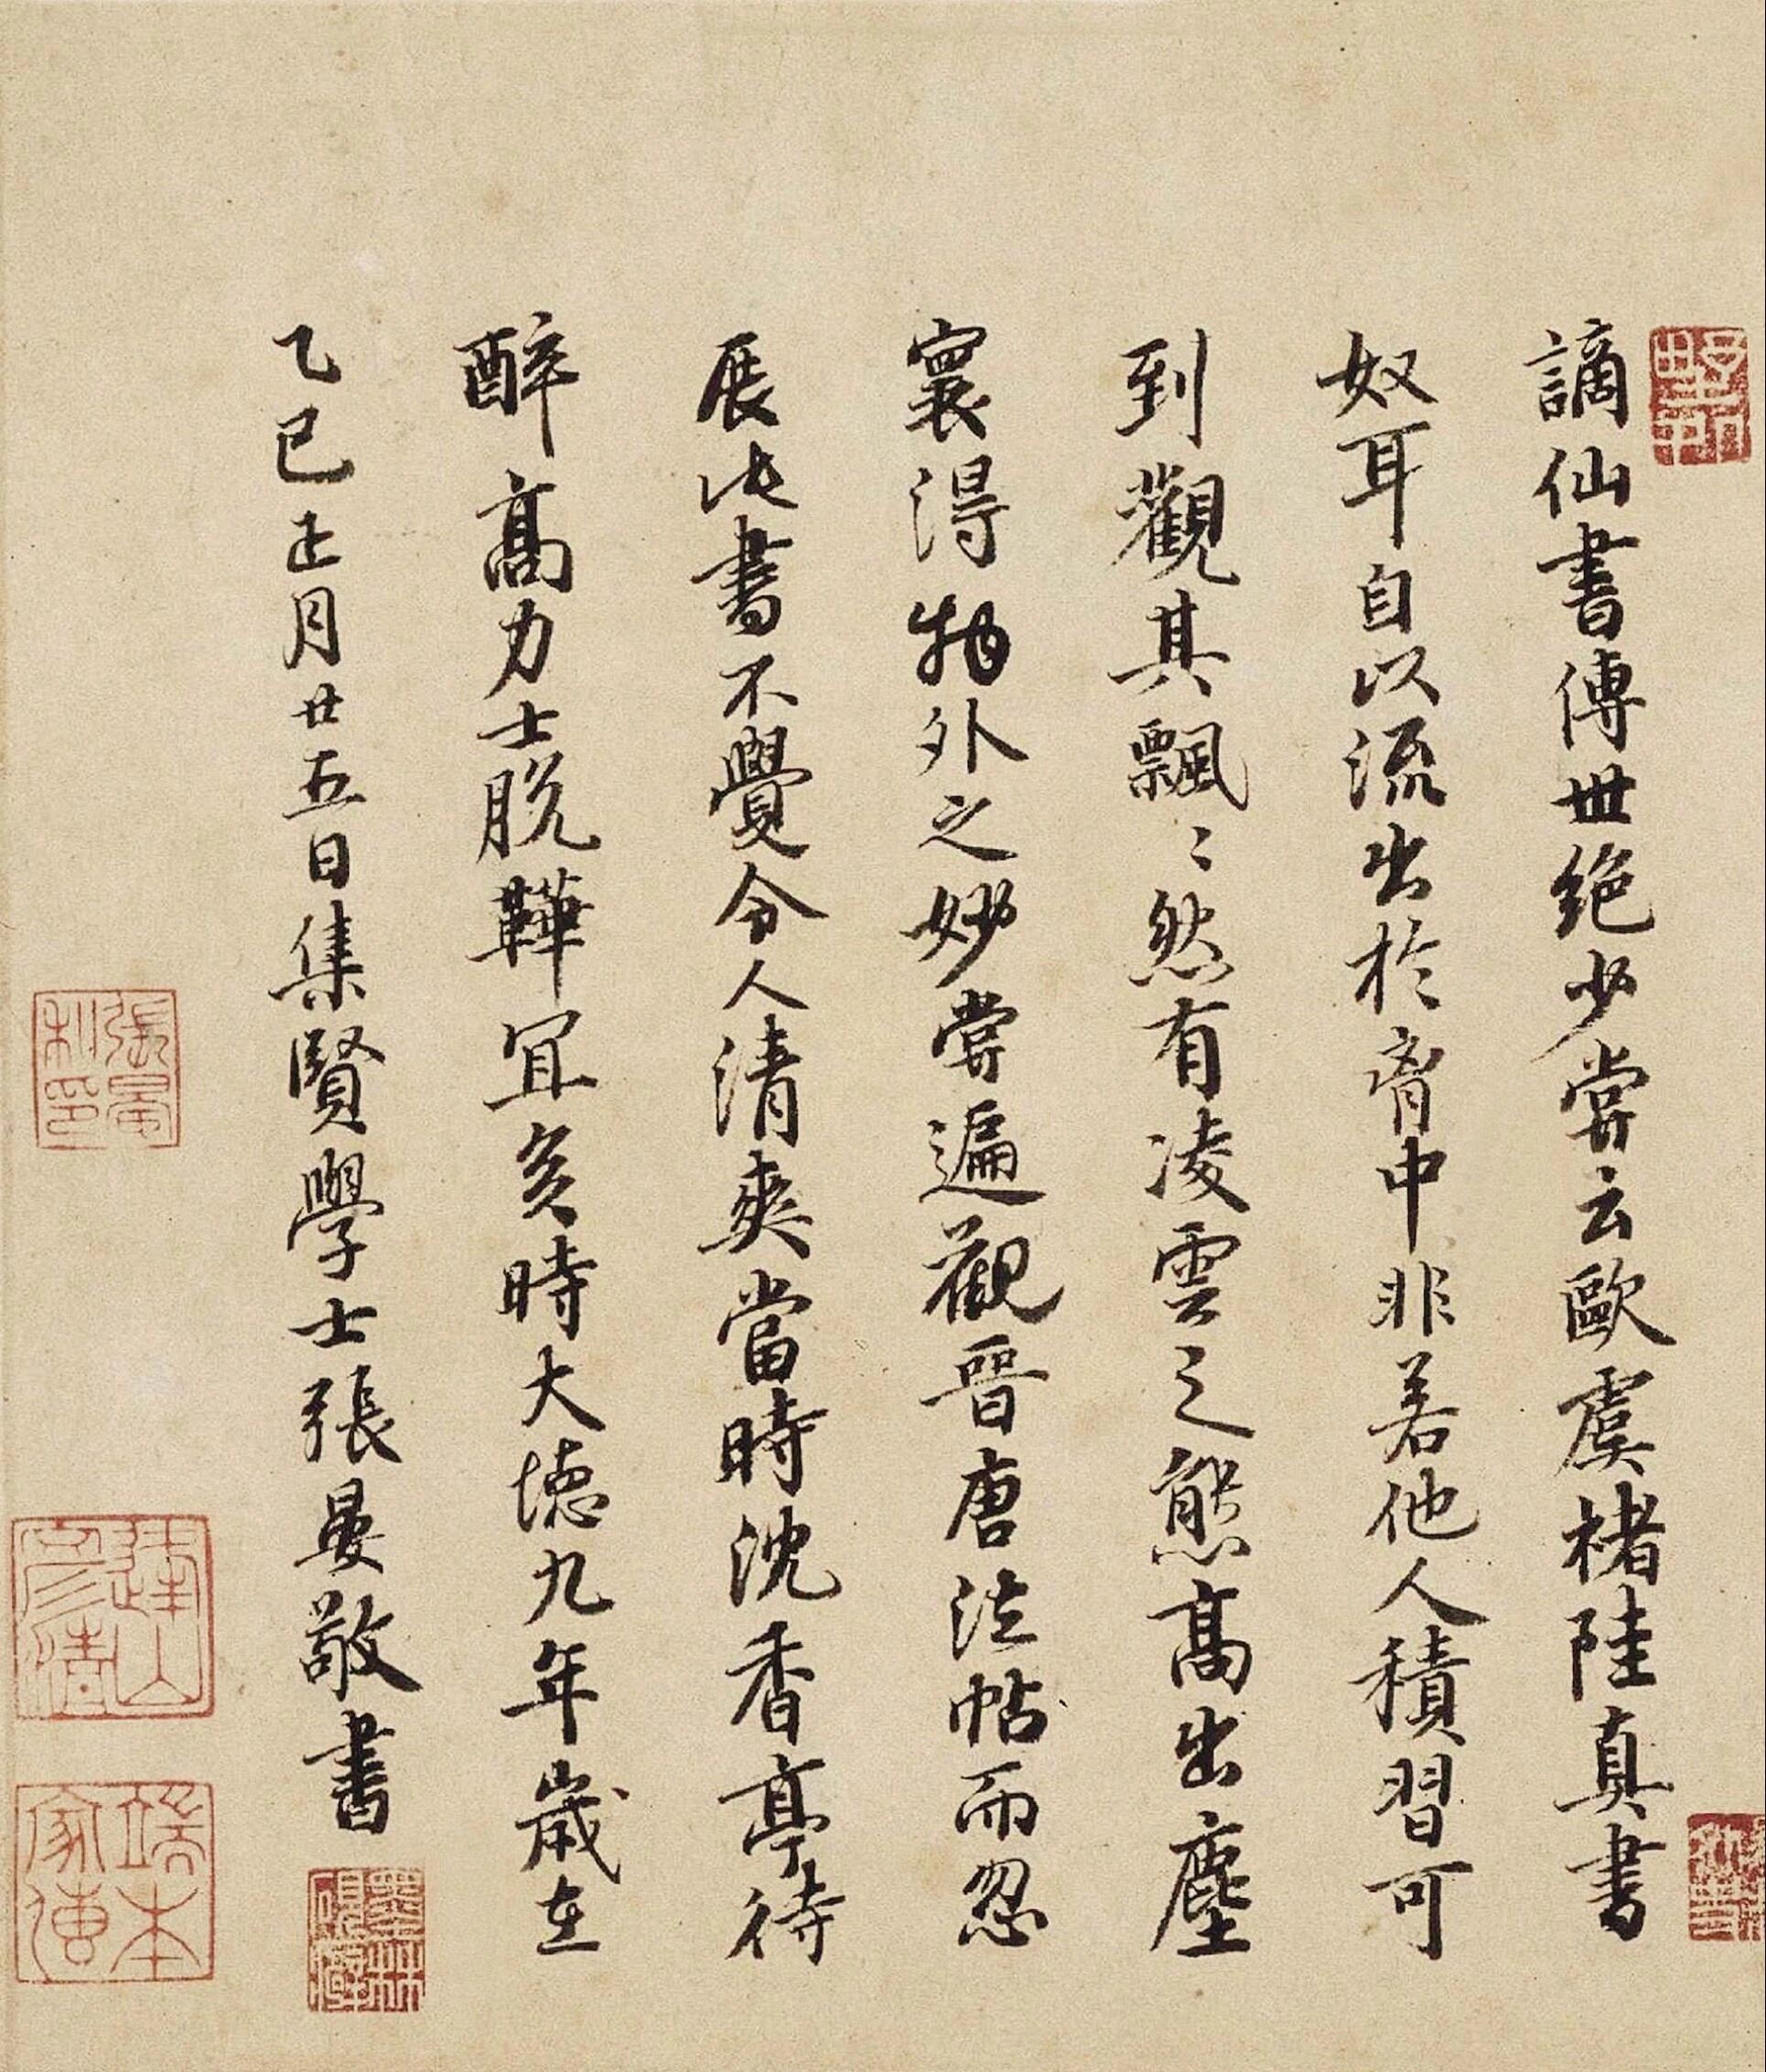 謫仙書傳世絶少嘗云歐虞褚陸真書
奴耳自以流出於胷中非若他人積習可
到觀其飄〻然有凌雲之態高出塵
寰得物外之妙嘗遍觀晉唐法帖而忽
展此書不覺令人清爽當時沈香亭待
醉高力士脫鞾冝亥時大德九年歲在
乙巳正月廿五日集賢學士張晏敬書
張晏
私印
端本
家傳